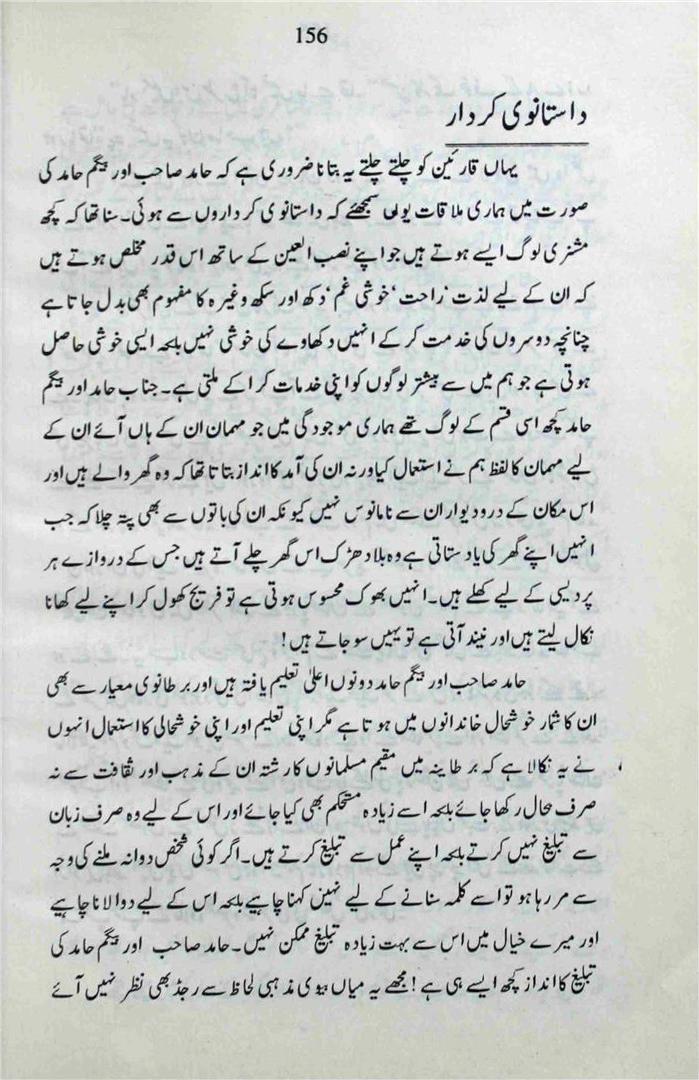 156
داستانوی کردار
یہاں قارئین کو چلتے چلتے یہ بتانا ضروری ہے کہ حامد صاحب اور بیگم حامد کی
صورت میں ہماری ملاقات یوں سمجھئے کہ داستانوی کرداروں سے ہوئی۔ سنا تھا کہ کچھ
مشنری لوگ ایسے ہوتے ہیں جو اپنے نصب العین کے ساتھ اس قدر مخلص ہوتے ہیں
کہ ان کے لیے لذت، راحت، خوشی غم، دکھ اور سکھ وغیرہ کا مفہوم بھی بدل جاتا ہے
چنانچہ دوسروں کی خدمت کر کے انہیں دکھاوے کی خوشی نہیں بلکہ ایسی خوشی حاصل
ہوتی ہے جو ہم میں سے بیشتر لوگوں کو اپنی خدمات کرا کے ملتی ہے۔ جناب حامد اور بیگم
حامد کچھ اسی قسم کے لوگ تھے ہماری موجودگی میں جو مہمان ان کے ہاں آئے ان کے
لیے مہمان کا لفظ ہم نے استعمال کیا ورنہ ان کی آمد کا انداز بتاتا تھا کہ وہ گھر والے ہیں اور
اس مکان کے درودیوار ان سے نامانوس نہیں کیونکہ ان کی باتوں سے بھی پتہ چلا کہ جب
انہیں اپنے گھر کی یاد ستاتی ہے وہ بلا دھڑک اس گھر چلے آتے ہیں جس کے دروازے ہر
پردیسی کے لیے کھلے ہیں۔ انہیں بھوک محسوس ہوتی ہے تو فریج کھول کر اپنے لیے کھانا
نکال لیتے ہیں اور نیند آتی ہے تو یہیں سو جاتے ہیں!
حامد صاحب اور بیگم حامد دونوں اعلیٰ تعلیم یافتہ ہیں اور برطانوی معیار سے بھی
ان کا شمار خوشحال خاندانوں میں ہوتا ہے مگر اپنی تعلیم اور اپنی خوشحالی کا استعمال انہوں
نے یہ نکالا ہے کہ برطانیہ میں مقیم مسلمانوں کا رشتہ ان کے مذہب اور ثقافت سے نہ
صرف بحال رکھا جائے بلکہ اسے زیادہ مستحکم بھی کیا جائے اور اس کے لیے وہ صرف زبان
سے تبلیغ نہیں کرتے بلکہ اپنے عمل سے تبلیغ کرتے ہیں۔ اگر کوئی شخص دوا نہ ملنے کی وجہ
سے مر رہا ہو تو اسے کلمہ سنانے کے لیے نہیں کہنا چاہیے بلکہ اس کے لیے دوا لانا چاہیے
اور میرے خیال میں اس سے بہت زیادہ تبلیغ ممکن نہیں۔ حامد صاحب اور بیگم حامد کی
تبلیغ کا انداز کچھ ایسے ہی ہے! مجھے یہ میاں بیوی مذہبی لحاظ سے رجڈ بھی نظر نہیں آئے